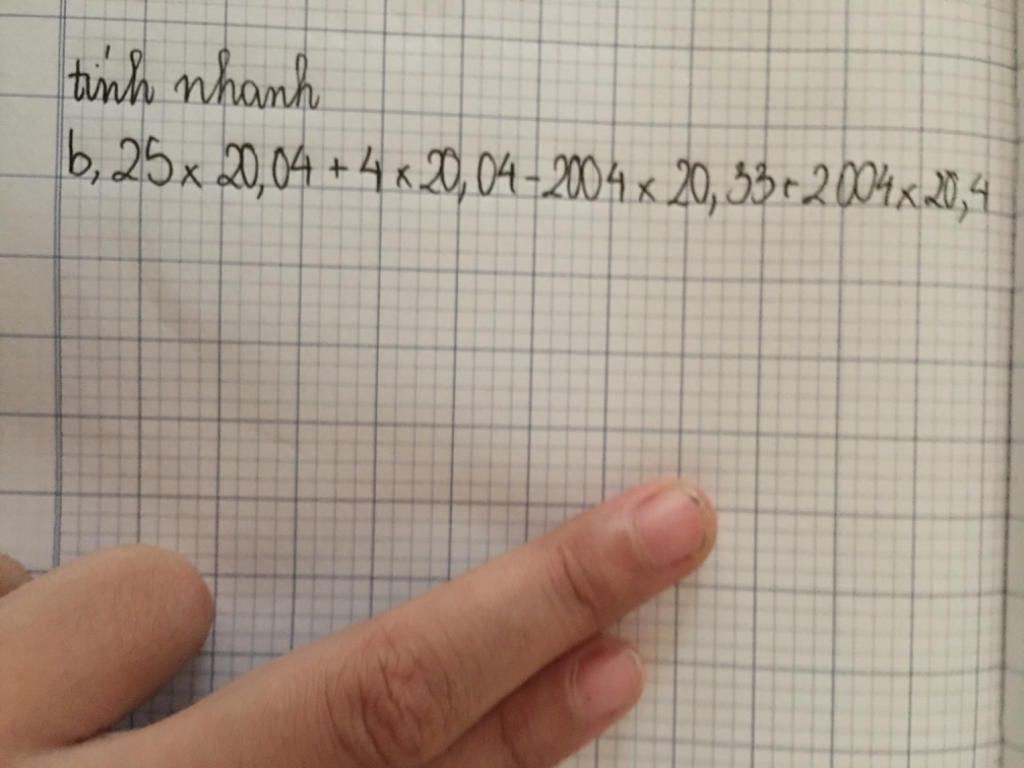 tính nhanh
b, 25 x 20,04 + 4 x 20,04 - 2004 x 20,33 + 2004 x 20,4